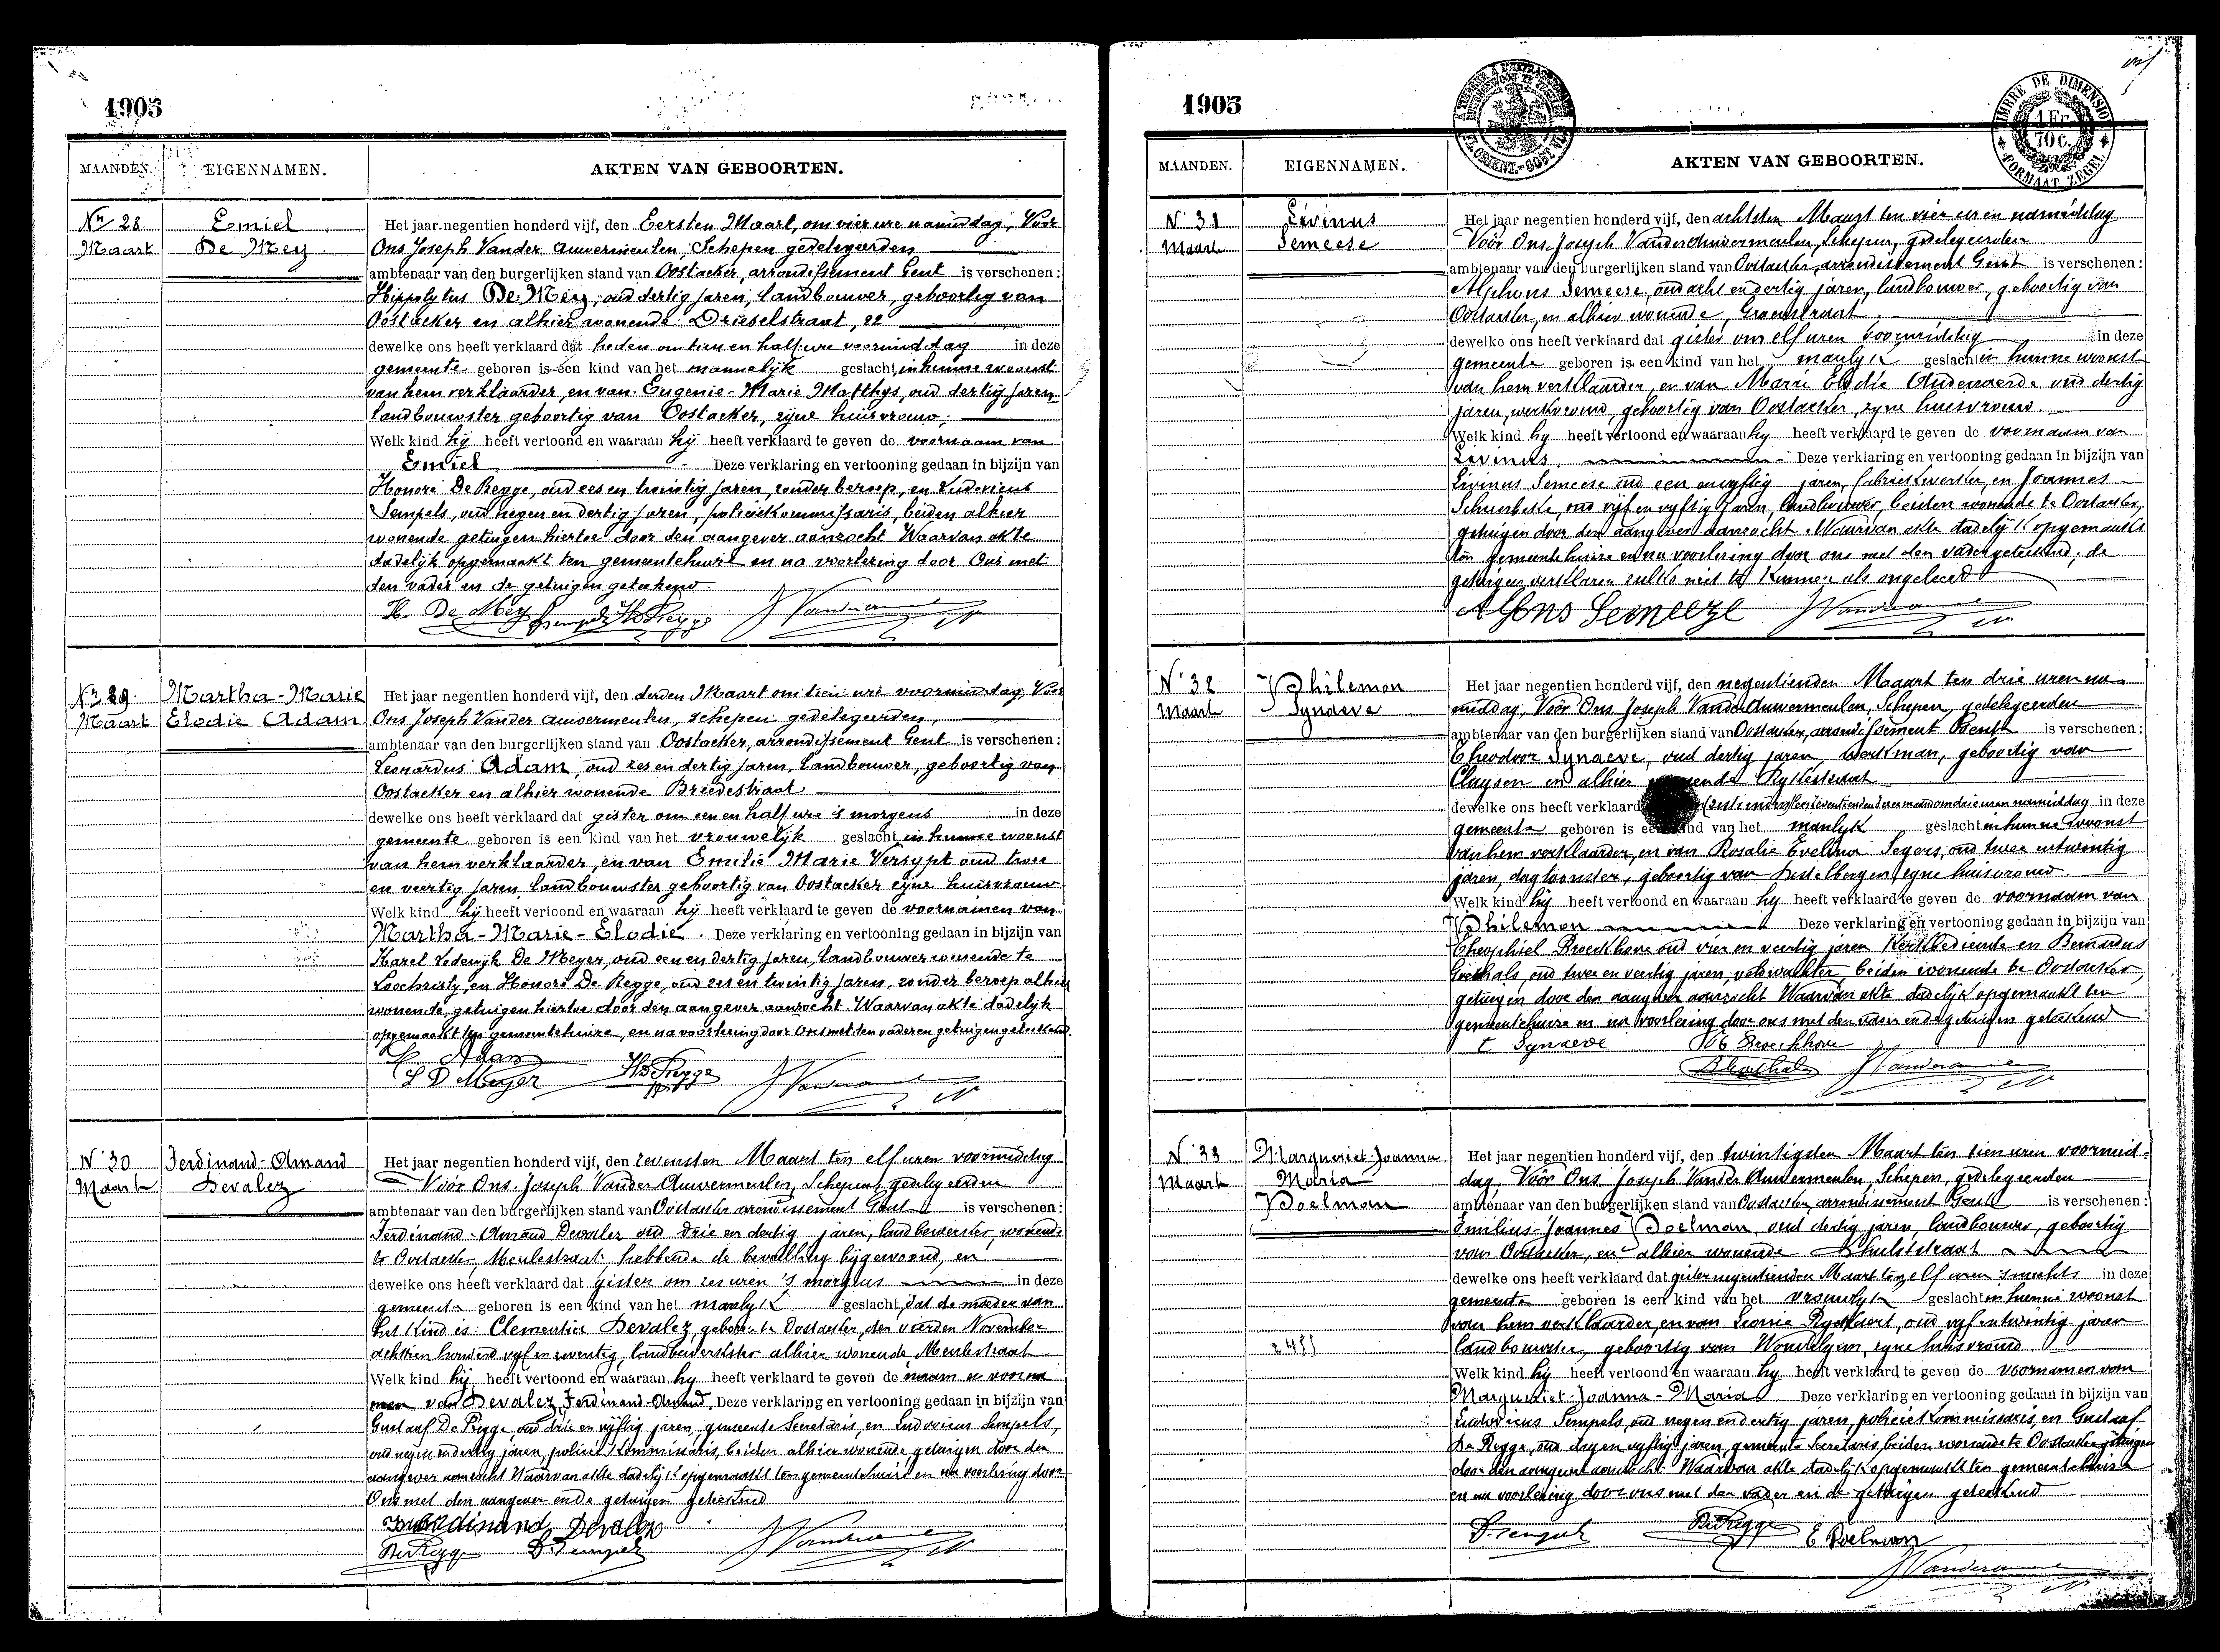 1905
MAANDEN. EIGENNAMEN. AKTEN VAN GEBOORTEN.
Nr 28 Emiel
Maart De Mey
Het jaar negentien honderd vijf, den Eersten Maart, om vier ure namiddag, Voor
Ons Joseph Vander Auwermeulen, Schepen gedelegeerden
ambtenaar van den burgerlijken stand van Oostacker, arrondissement Gent is verschenen:
Hippolytus De Mey, oud dertig jaren, landbouwer, geboortig van
Oostacker en alhier wonende Drieselstraat, 22
dewelke ons heeft verklaard dat heden om tien en half ure voormiddag in deze
gemeente geboren is een kind van het mannelijk geslacht, in hunne woonst
van hem verklaarder, en van Eugenie-Marie Matthys, oud dertig jaren
landbouwster geboortig van Oostacker, zijne huisvrouw;
Welk kind hij heeft vertoond en waaraan hij heeft verklaard te geven de voornaam van
Emiel Deze verklaring en vertooning gedaan in bijzijn van
Honoré De Regge, oud zes en twintig jaren, zonder beroep, en Ludovicus
Sempels, oud negen en dertig jaren, policiekommissaris, beiden alhier
wonende getuigen hiertoe door den aangever aanzocht Waarvan akte
dadelijk opgemaakt ten gemeentehuize en na voorlezing door Ons met
den vader en de getuigen geteekend.
H. De Mey Sempels H De Regge J Vanderauwe
Nr 29. Martha-Marie
Maart Elodie Adam
Het jaar negentien honderd vijf, den derden Maart om tien ure voormiddag Voor
Ons Joseph Vander Auwermeulen, schepen gedelegeerden,
ambtenaar van den burgerlijken stand van Oostacker, arrondissement Gent is verschenen:
Leonardus Adam, oud zes en dertig jaren, landbouwer, geboortig van
Oostacker en alhier wonende Breedestraat
dewelke ons heeft verklaard dat gister om een en half ure 's morgens in deze
gemeente geboren is een kind van het vrouwelijk geslacht, in hunne woonst
van hem verklaarder, en van Emilie Marie Versypt oud twee
en veertig jaren landbouwster geboortig van Oostacker zijne huisvrouw
Welk kind hij heeft vertoond en waaraan hij heeft verklaard te geven de voornamen van
Martha-Marie-Elodie. Deze verklaring en vertooning gedaan in bijzijn van
Karel Lodewijk De Meyer, oud een en dertig jaren, landbouwer wonende te
Loochristy, en Honoré De Regge, oud zes en twintig jaren, zonder beroep alhier
wonende, getuigen hiertoe door den aangever aanzocht. Waarvan akte dadelijk
opgemaakt ten gemeentehuize, en na voorlezing door Ons met den vader en getuigen geteekend.
L Adam
L D Meyer H De Regge J Vanderauwe
N° 30 Ferdinand-Amand
Maart Devalez
Het jaar negentien honderd vijf, den zevensten Maart ten elf uren voormiddag
Vóór Ons Joseph Vander Auwermeulen, Schepen, gedelegeerden
ambtenaar van den burgerlijken stand van Oostacker arrondissement Gent is verschenen:
Ferdinand-Amand Devalez oud drie en dertig jaren, landbewerker, wonende
te Oostacker Meulestraat hebbende de bevalling bijgewoond, en
dewelke ons heeft verklaard dat gister om zes uren 's morgens in deze
gemeente geboren is een kind van het manlyk geslacht, dat de moeder van
het kind is: Clementia Devalez, geboren te Oostacker, den vierden November
achttien honderd vyf en zeventig, landbewerkster alhier wonende, Meulestraat
Welk kind hij heeft vertoond en waaraan hy heeft verklaard te geven de naam en voorna
men van Devalez, Ferdinand-Amand. Deze verklaring en vertooning gedaan in bijzijn van
Gustaaf De Regge, oud drie en vijftig jaren, gemeente Secretaris, en Ludovicus Sempels,
oud negen en dertig jaren, policie Kommissaris, beiden alhier wonende, getuigen door den
aangever aanzocht Waarvan akte dadelijk opgemaakt ten gemeentehuize en na voorlezing door
Ons met den aangever en de getuigen geteekend
Ferdinand Devalez J Vanderauwe
De Regge D. Sempels
1905
A L'EXTRAORDINAIRE
FL. ORIENT.-OOST VL.
TIMBRE DE DIMENSION
1 Fr.
70 c.
FORMAAT ZEGEL
MAANDEN. EIGENNAMEN. AKTEN VAN GEBOORTEN.
N° 31 Livinus
Maart Semeese
Het jaar negentien honderd vijf, den achtsten Maart ten vier uren namiddag
Vóór Ons Joseph Vander Auwermeulen, Schepen, gedelegeerden
ambtenaar van den burgerlijken stand van Oostacker, arrondissement Gent is verschenen:
Alphons Semeese, oud acht en dertig jaren, landbouwer, geboortig van
Oostacker, en alhier wonende, Groenstraat.
dewelke ons heeft verklaard dat gister om elf uren voormiddag in deze
gemeente geboren is een kind van het manlyk geslacht in hunne woonst
van hem verklaarder, en van Marie Elodie Audenaerde oud dertig
jaren, werkvrouw, geboortig van Oostacker, zyne huisvrouw.
Welk kind hy heeft vertoond en waaraan hy heeft verklaard te geven de voornaam van
Livinus. Deze verklaring en vertooning gedaan in bijzijn van
Livinus Semeese oud een en vyftig jaren, fabriekwerker, en Joannes
oud vijf en vyftig jaren, landbouwer, beiden wonende te Oostacker,
getuigen door den aangever aanzocht. Waarvan akte dadelijk opgemaakt
ten gemeentehuize en na voorlezing door ons met den vader geteekend; de
getuigen verklaren zulks niet te kunnen als ongeleerd
Alfons Semeeze J Vanderauwe
N° 32 Philemon
Maart Synaeve
Het jaar negentien honderd vijf, den negentienden Maart ten drie uren na
middag, Vóór Ons Joseph Vander Auwermeulen, Schepen, gedelegeerden
ambtenaar van den burgerlijken stand van Oostacker, arrondissement Gent is verschenen:
Theodoor Synaeve, oud dertig jaren, werkman, geboortig van
Cluysen en alhier wonende Rykestraat
dewelke ons heeft verklaard om drie uren namiddag in deze
gemeente geboren is een kind van het manlyk geslacht in hunne woonst
van hem verklaarder, en van Rosalie Evelina Segers, oud twee en twintig
jaren, dagloonster, geboortig van Destelbergen, zyne huisvrouw.
Welk kind hij heeft vertoond en waaraan hy heeft verklaard te geven de voornaam van
Philemon Deze verklaring en vertooning gedaan in bijzijn van
Theophiel Broeckhove oud vier en veertig jaren Kerkbediende en Bernardus
Goethals, oud twee en veertig jaren, veldwachter, beiden wonende te Oostacker,
getuigen door den aangever aanzocht Waarvan akte dadelyk opgemaakt ten
gemeentehuize en na voorlezing door ons met den vader en de getuigen geteekend
t Synaeve Th Broeckhove
B Goethals J Vanderauwe
N° 33 Margueriet-Joanna
Maart Maria
Poelman
Het jaar negentien honderd vijf, den twintigsten Maart ten tien uren voormid-
dag, Vóór Ons Joseph Vander Auwermeulen, Schepen, gedelegeerden
ambtenaar van den burgerlijken stand van Oostacker, arrondissement Gent is verschenen:
Emilius-Joannes Poelman, oud dertig jaren, landbouwer, geboortig
van Oostacker, en alhier wonende Hulststraat
dewelke ons heeft verklaard dat gister negentienden Maart ten elf uren 's nachts in deze
gemeente geboren is een kind van het vrouwlyk geslacht in hunne woonst
van hem verklaarder, en van Leonie Ryckaert, oud vyf en twintig jaren
landbouwster, geboortig van Wondelgem, zyne huisvrouw.
Welk kind hij heeft vertoond en waaraan hy heeft verklaard te geven de voornamen van
Margueriet-Joanna-Maria Deze verklaring en vertooning gedaan in bijzijn van
Ludovicus Sempels, oud negen en dertig jaren, policie Kommissaris, en Gustaaf
De Regge, oud dry en vyftig jaren, gemeente Secretaris, beiden wonende te Oostacker getuigen
door den aangever aanzocht. Waarvan akte dadelyk opgemaakt ten gemeentehuize
en na voorlezing door ons met den vader en de getuigen geteekend
D. Sempels De Regge E Poelman
J Vanderauwe